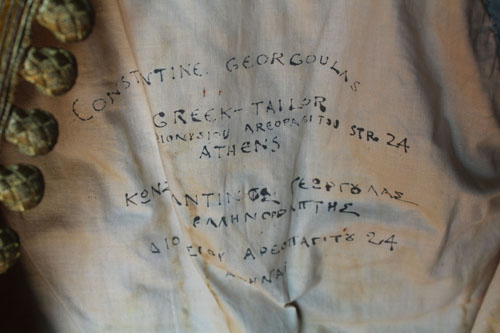 CONSTNTINE GEORGOULAS
GREEK-TAILOR
DIONYSIOU AREOPAGITOU STR 24
ATHENS
ΚΩΝ ΑΝΤΙΝΟΣ ΓΕΩΡΓΟΥΛΑΣ
ΕΛΛΗΝΟΡΑΠΤΗΣ
ΔΙΟ ΣΙΟΥ ΑΡΕΟΠΑΓΙΤΟΥ 24
ΑΘΗΝΑΙ